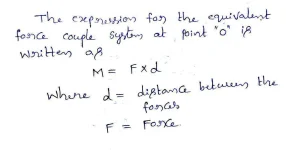 The expression for the equivalent
force couple system at point "O" is
written as
M = F x d
where d = distance between the
forces
F = Force